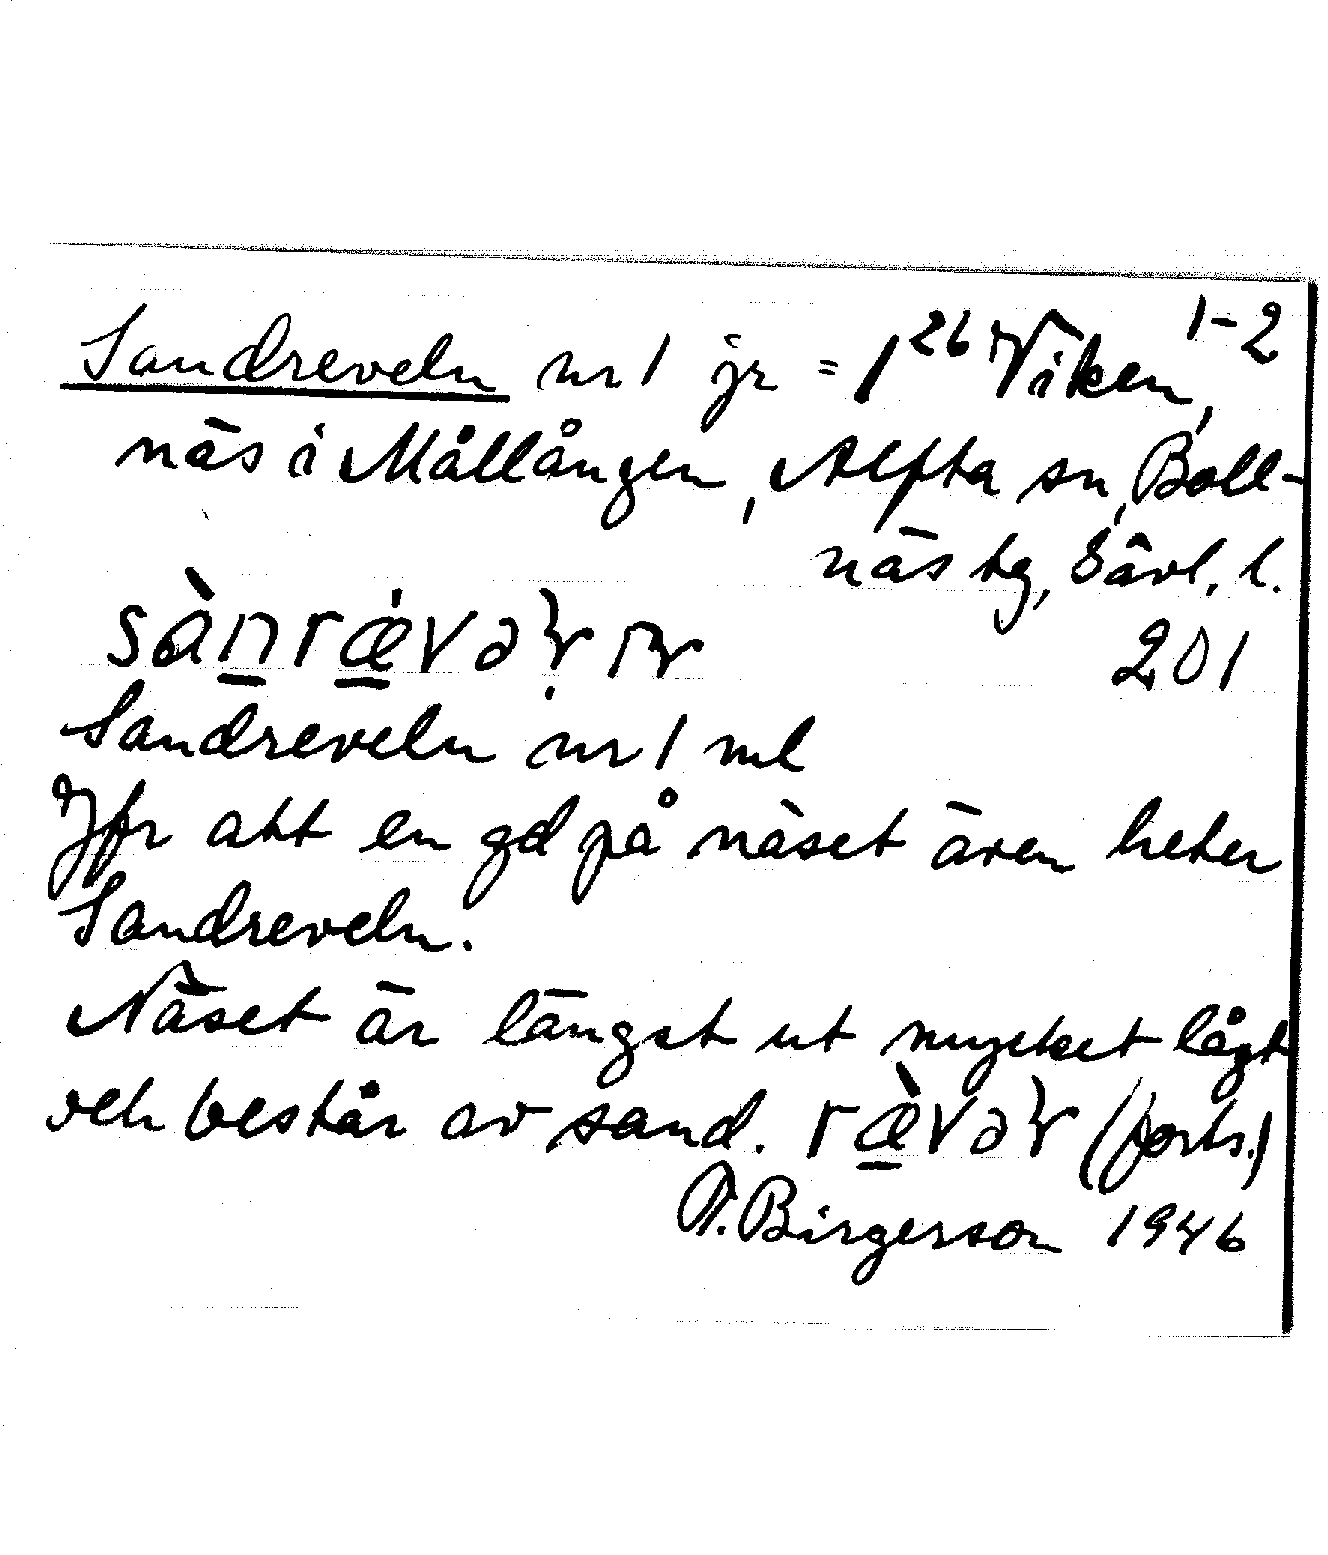 Sandreveln nr 1 jr = 1²⁶ Viken, 1-2
näs i Mållången, Alfta sn, Boll-
näs tg, Gävl. l.
201
Sandreveln nr 1 ml
Jfr att en gd på näset även heter
Sandreveln.
Näset är längst ut mycket lågt
och består av sand. (forts.)
Birgerson 1946